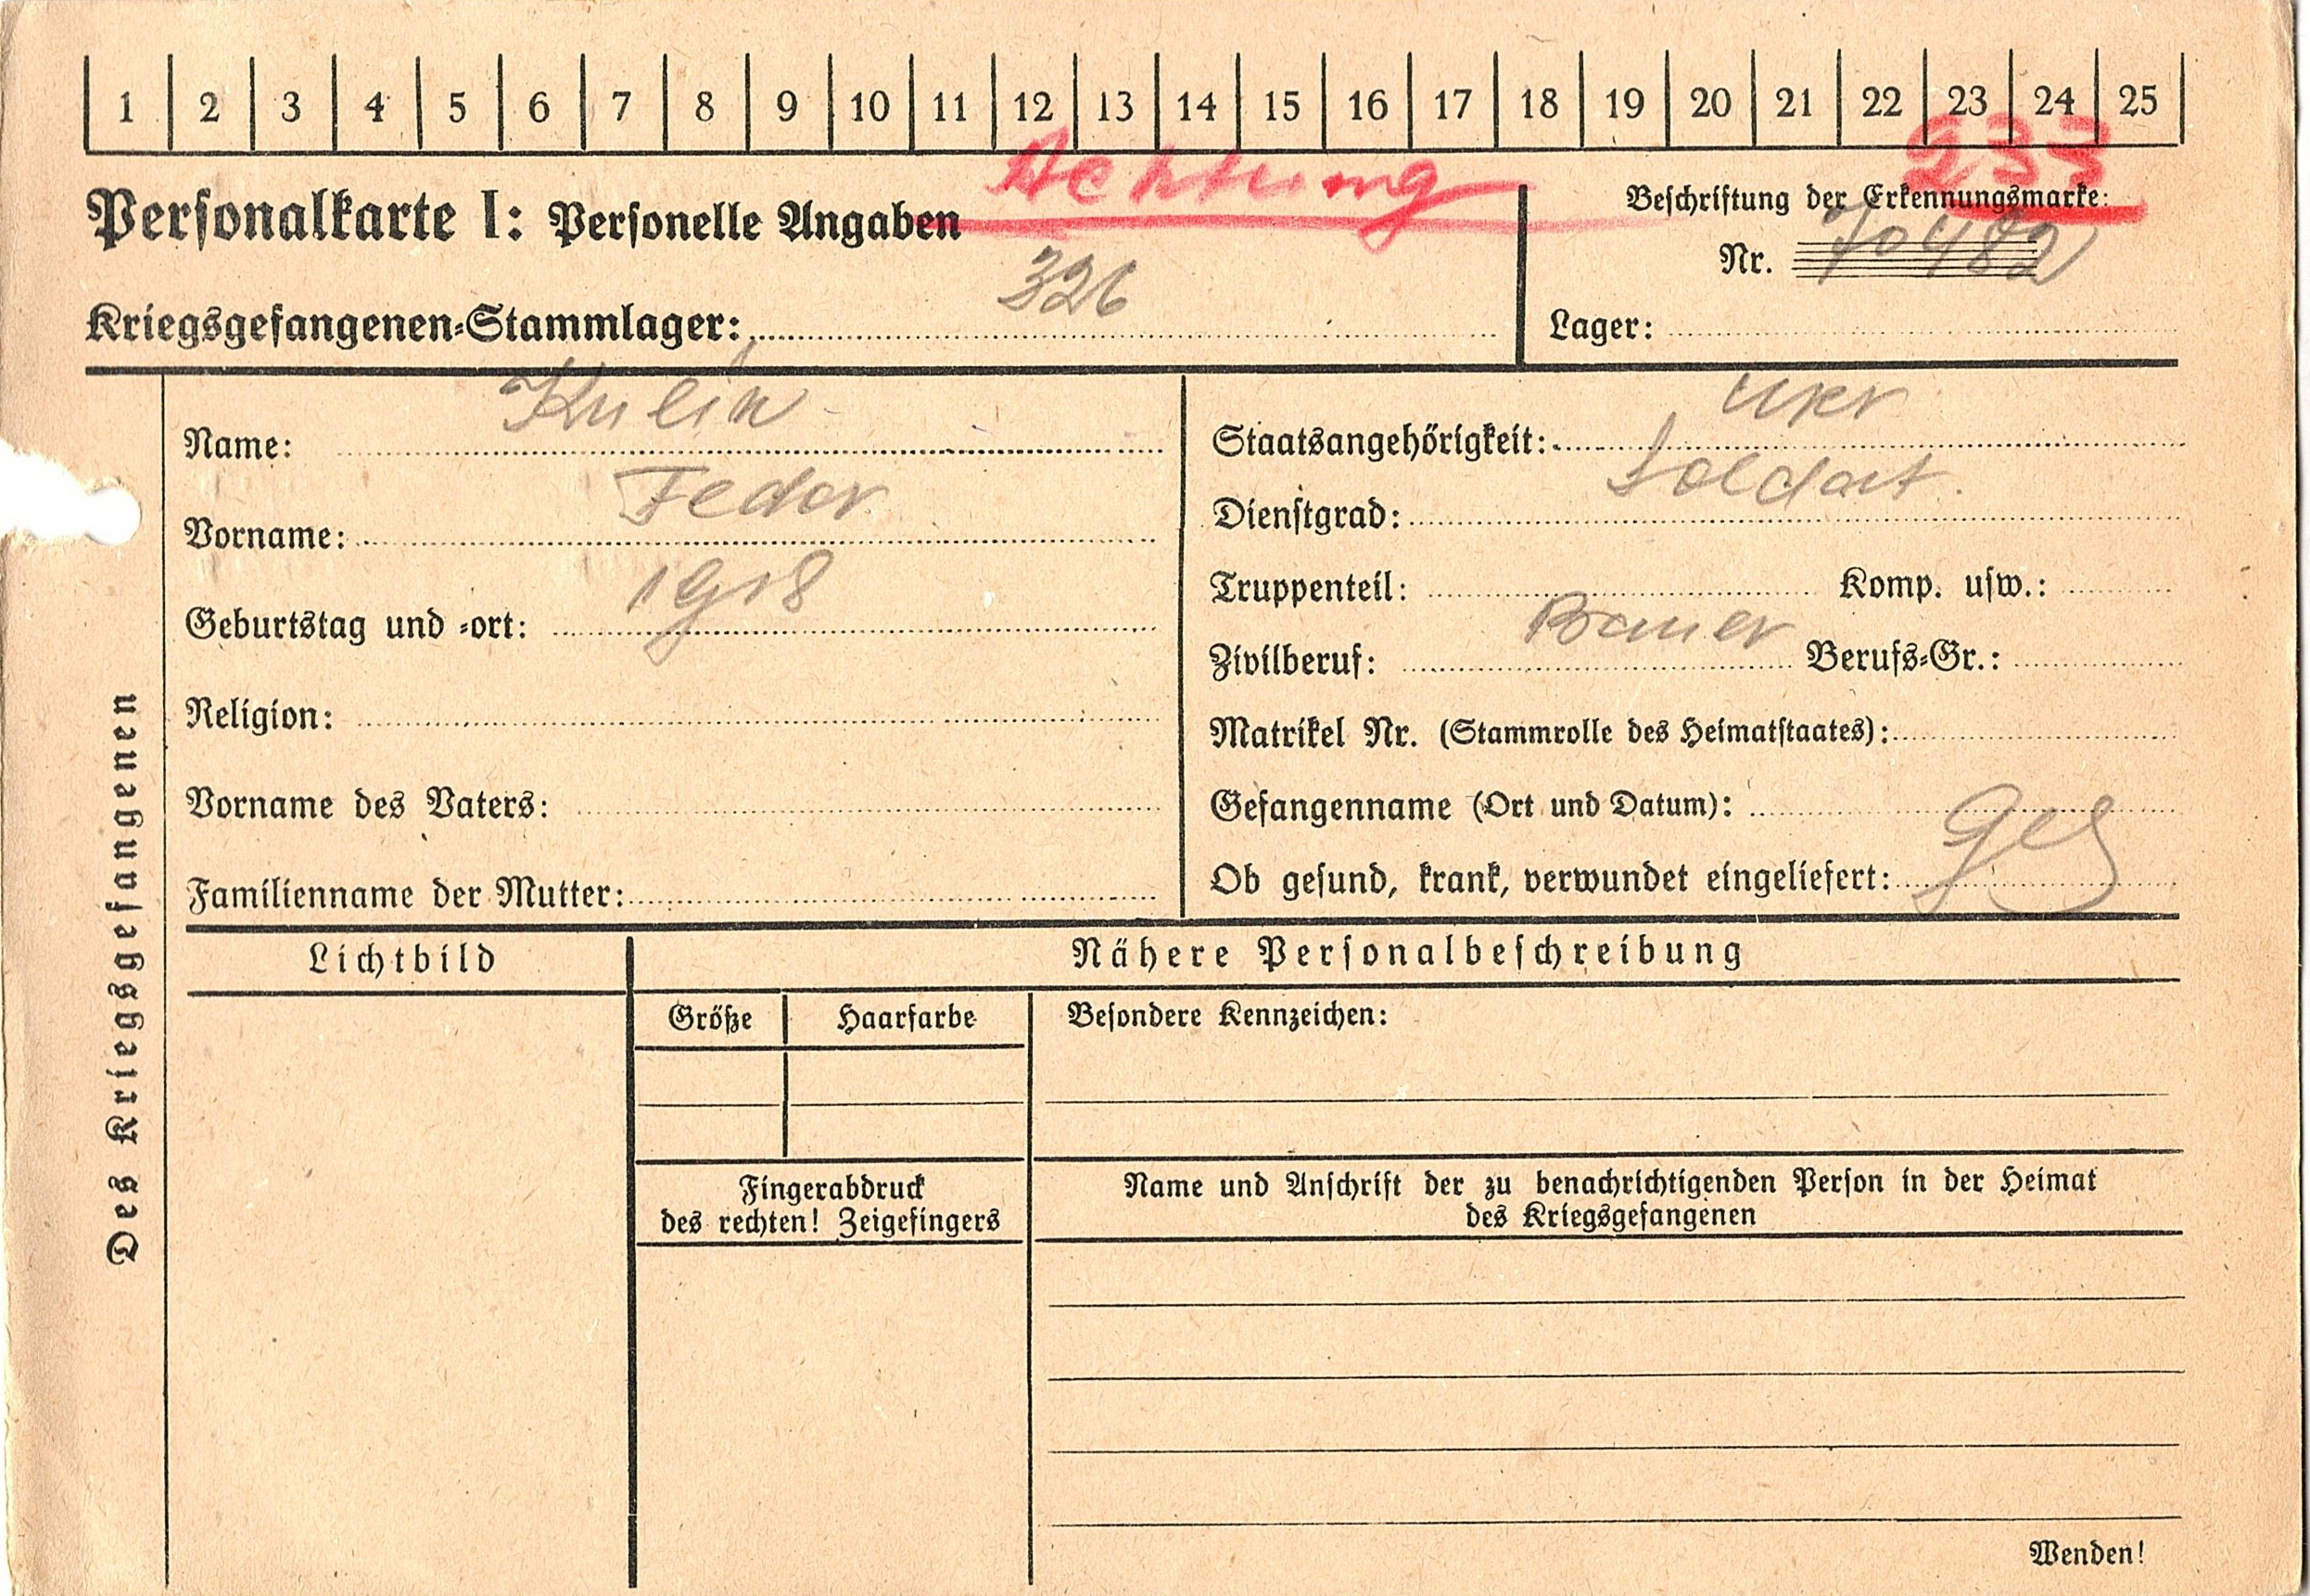 1 2 3 4 5 6 7 8 9 10 11 12 13 14 15 16 17 18 19 20 21 22 23 24 25
Achtung 233
Personalkarte I: Personelle Angaben
Beschriftung der Erkennungsmarke:
Nr. 70482
Kriegsgefangenen-Stammlager: 326
Lager:
Des Kriegsgefangenen
Name: Kulik
Vorname: Fedor
Geburtstag und -ort: 1918
Religion:
Vorname des Vaters:
Familienname der Mutter:
Staatsangehörigkeit: Ukr
Dienstgrad: Soldat.
Truppenteil: Komp. usw.:
Zivilberuf: Bauer Berufs-Gr.:
Matrikel Nr. (Stammrolle des Heimatstaates):
Gefangenname (Ort und Datum):
Ob gesund, krank, verwundet eingeliefert: Ges
Lichtbild
Nähere Personalbeschreibung
Größe Haarfarbe
Besondere Kennzeichen:
Fingerabdruck
des rechten! Zeigefingers
Name und Anschrift der zu benachrichtigenden Person in der Heimat
des Kriegsgefangenen
Wenden!